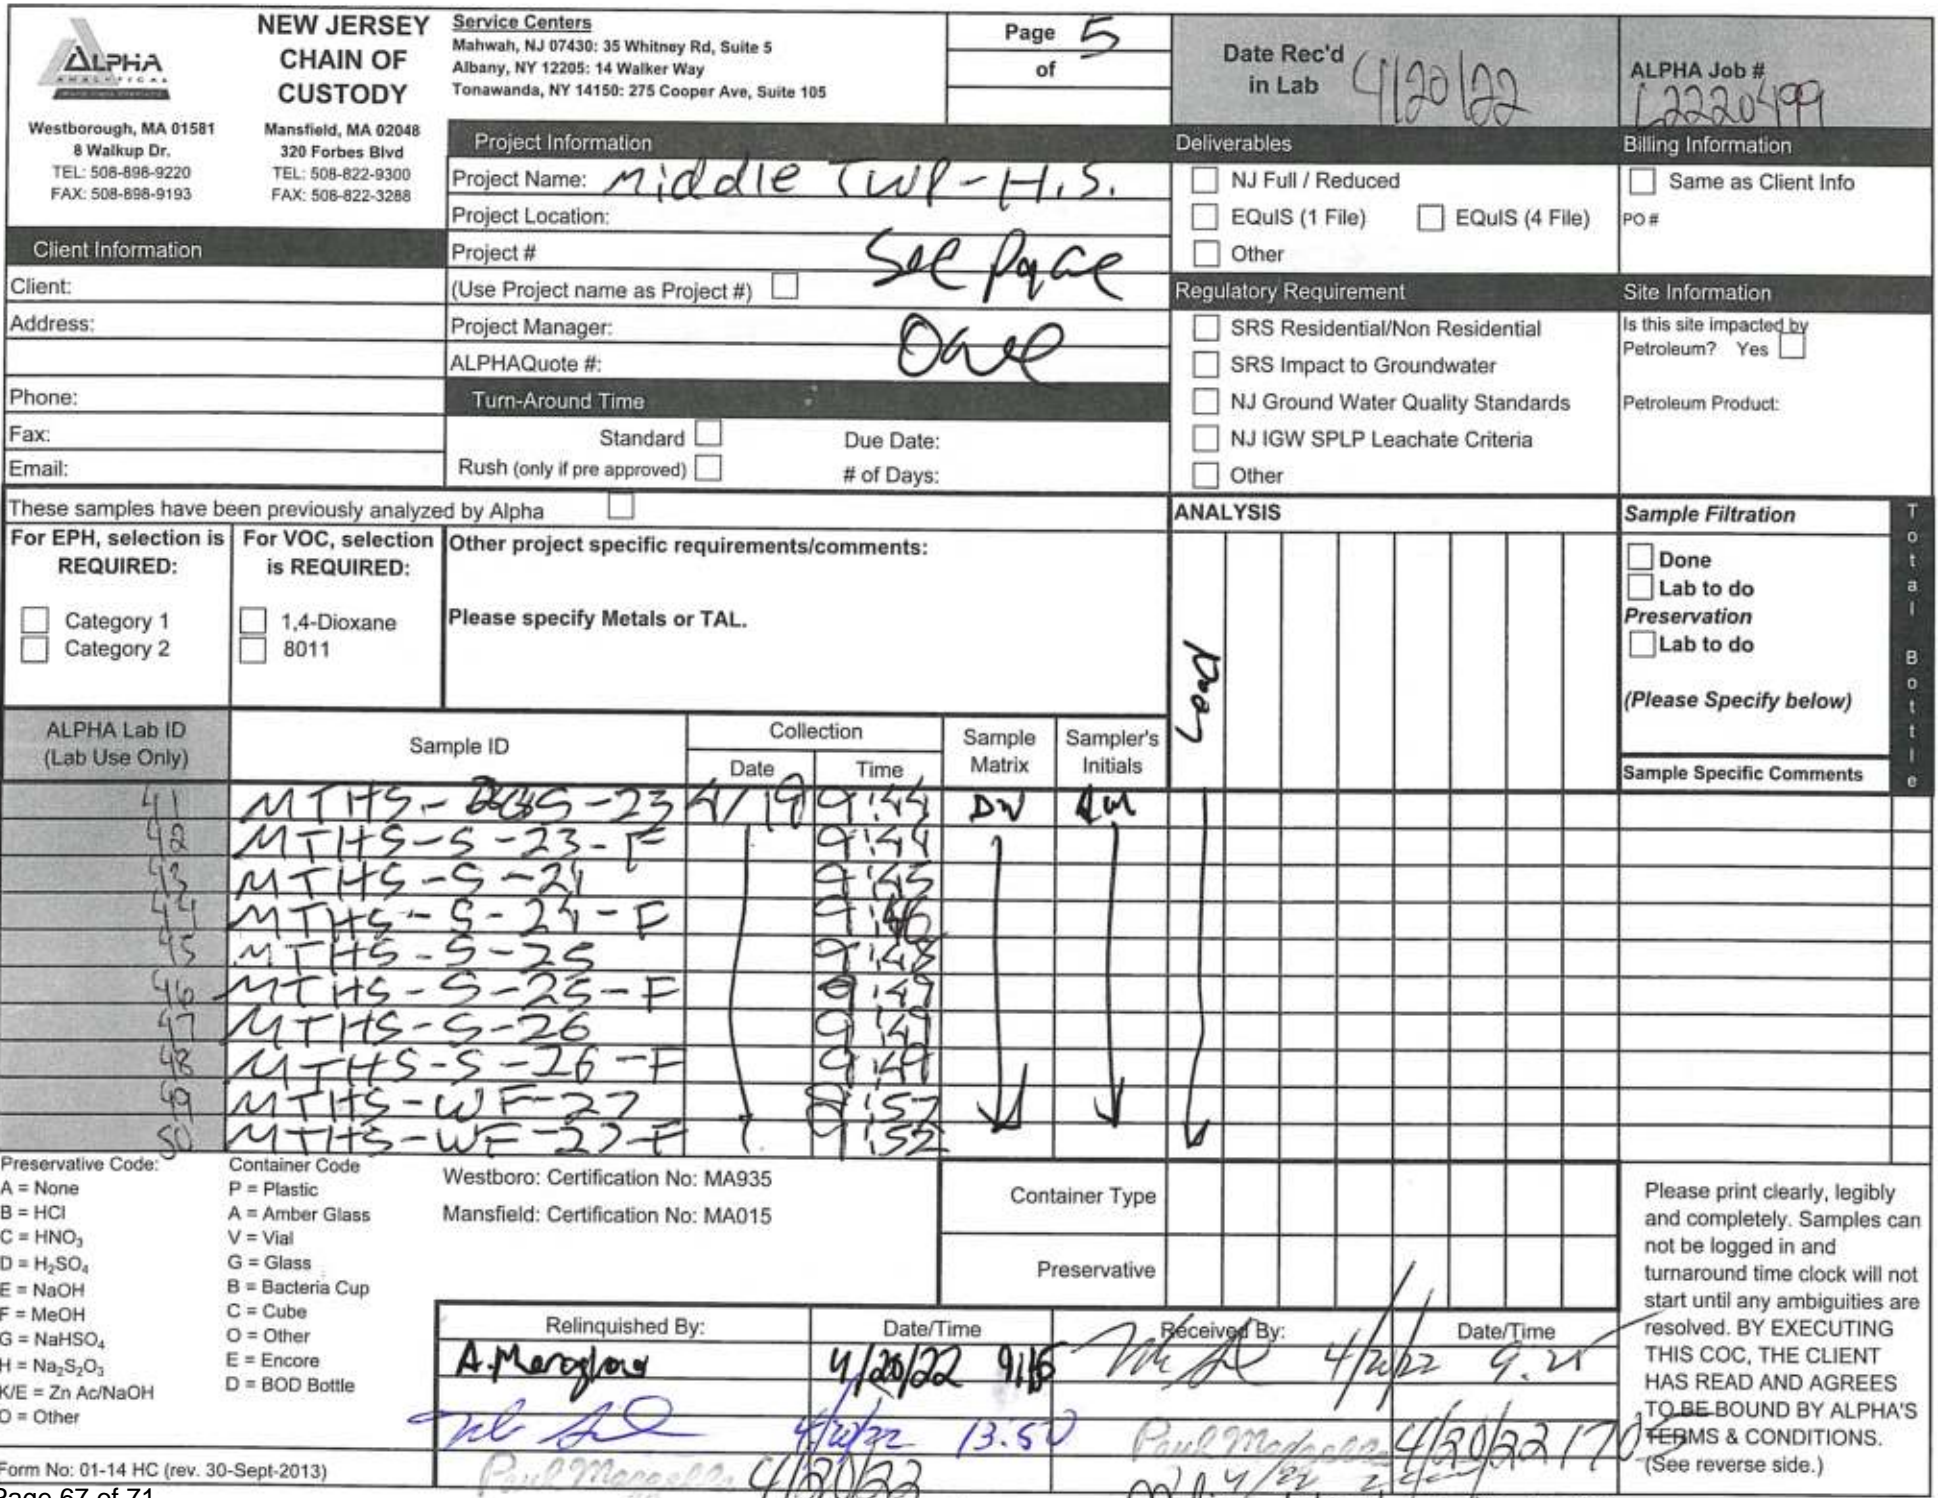 ALPHA
ANALYTICAL
Westborough, MA 01581
8 Walkup Dr.
TEL: 508-898-9220
FAX: 508-898-9193
NEW JERSEY
CHAIN OF
CUSTODY
Mansfield, MA 02048
320 Forbes Blvd
TEL: 508-822-9300
FAX: 508-822-3288
Service Centers
Mahwah, NJ 07430: 35 Whitney Rd, Suite 5
Albany, NY 12205: 14 Walker Way
Tonawanda, NY 14150: 275 Cooper Ave, Suite 105
Page 5
of
Date Rec'd
in Lab 4/20/22
ALPHA Job #
L2220499
Client Information
Client:
Address:
Phone:
Fax:
Email:
Project Information
Project Name: Middle Twp - H.S.
Project Location:
Project #
See Page
(Use Project name as Project #)
Project Manager:
One
ALPHAQuote #:
Turn-Around Time
Standard Due Date:
Rush (only if pre approved) # of Days:
Deliverables
NJ Full / Reduced
EQuIS (1 File) EQuIS (4 File)
Other
Regulatory Requirement
SRS Residential/Non Residential
SRS Impact to Groundwater
NJ Ground Water Quality Standards
NJ IGW SPLP Leachate Criteria
Other
Billing Information
Same as Client Info
PO #
Site Information
Is this site impacted by
Petroleum? Yes
Petroleum Product:
These samples have been previously analyzed by Alpha
For EPH, selection is
REQUIRED:
Category 1
Category 2
For VOC, selection
is REQUIRED:
1,4-Dioxane
8011
Other project specific requirements/comments:
Please specify Metals or TAL.
ANALYSIS
Lead
Sample Filtration
Done
Lab to do
Preservation
Lab to do
(Please Specify below)
Sample Specific Comments
Total Bottle
ALPHA Lab ID
(Lab Use Only)
Sample ID
Collection
Date Time
Sample
Matrix
Sampler's
Initials
41 MTHS- S-23 4/19 9:44 DW AM
42 MTHS-S-23-F 9:44
43 MTHS-S-24 9:45
44 MTHS-S-24-F 9:46
45 MTHS-S-25 9:48
46 MTHS-S-25-F 9:49
47 MTHS-S-26 9:49
48 MTHS-S-26-F 9:49
49 MTHS-WF-27 9:52
50 MTHS-WF-27-F 9:52
Preservative Code:
A = None
B = HCl
C = HNO3
D = H2SO4
E = NaOH
F = MeOH
G = NaHSO4
H = Na2S2O3
K/E = Zn Ac/NaOH
O = Other
Container Code
P = Plastic
A = Amber Glass
V = Vial
G = Glass
B = Bacteria Cup
C = Cube
O = Other
E = Encore
D = BOD Bottle
Westboro: Certification No: MA935
Mansfield: Certification No: MA015
Container Type
Preservative
Relinquished By: Date/Time Received By: Date/Time
4/20/22 9:15 4/20/22 9:25
4/20/22 13:50 Paul 4/20/22 1705
Paul 4/20/22
Please print clearly, legibly
and completely. Samples can
not be logged in and
turnaround time clock will not
start until any ambiguities are
resolved. BY EXECUTING
THIS COC, THE CLIENT
HAS READ AND AGREES
TO BE BOUND BY ALPHA'S
TERMS & CONDITIONS.
(See reverse side.)
Form No: 01-14 HC (rev. 30-Sept-2013)
Page 67 of 71